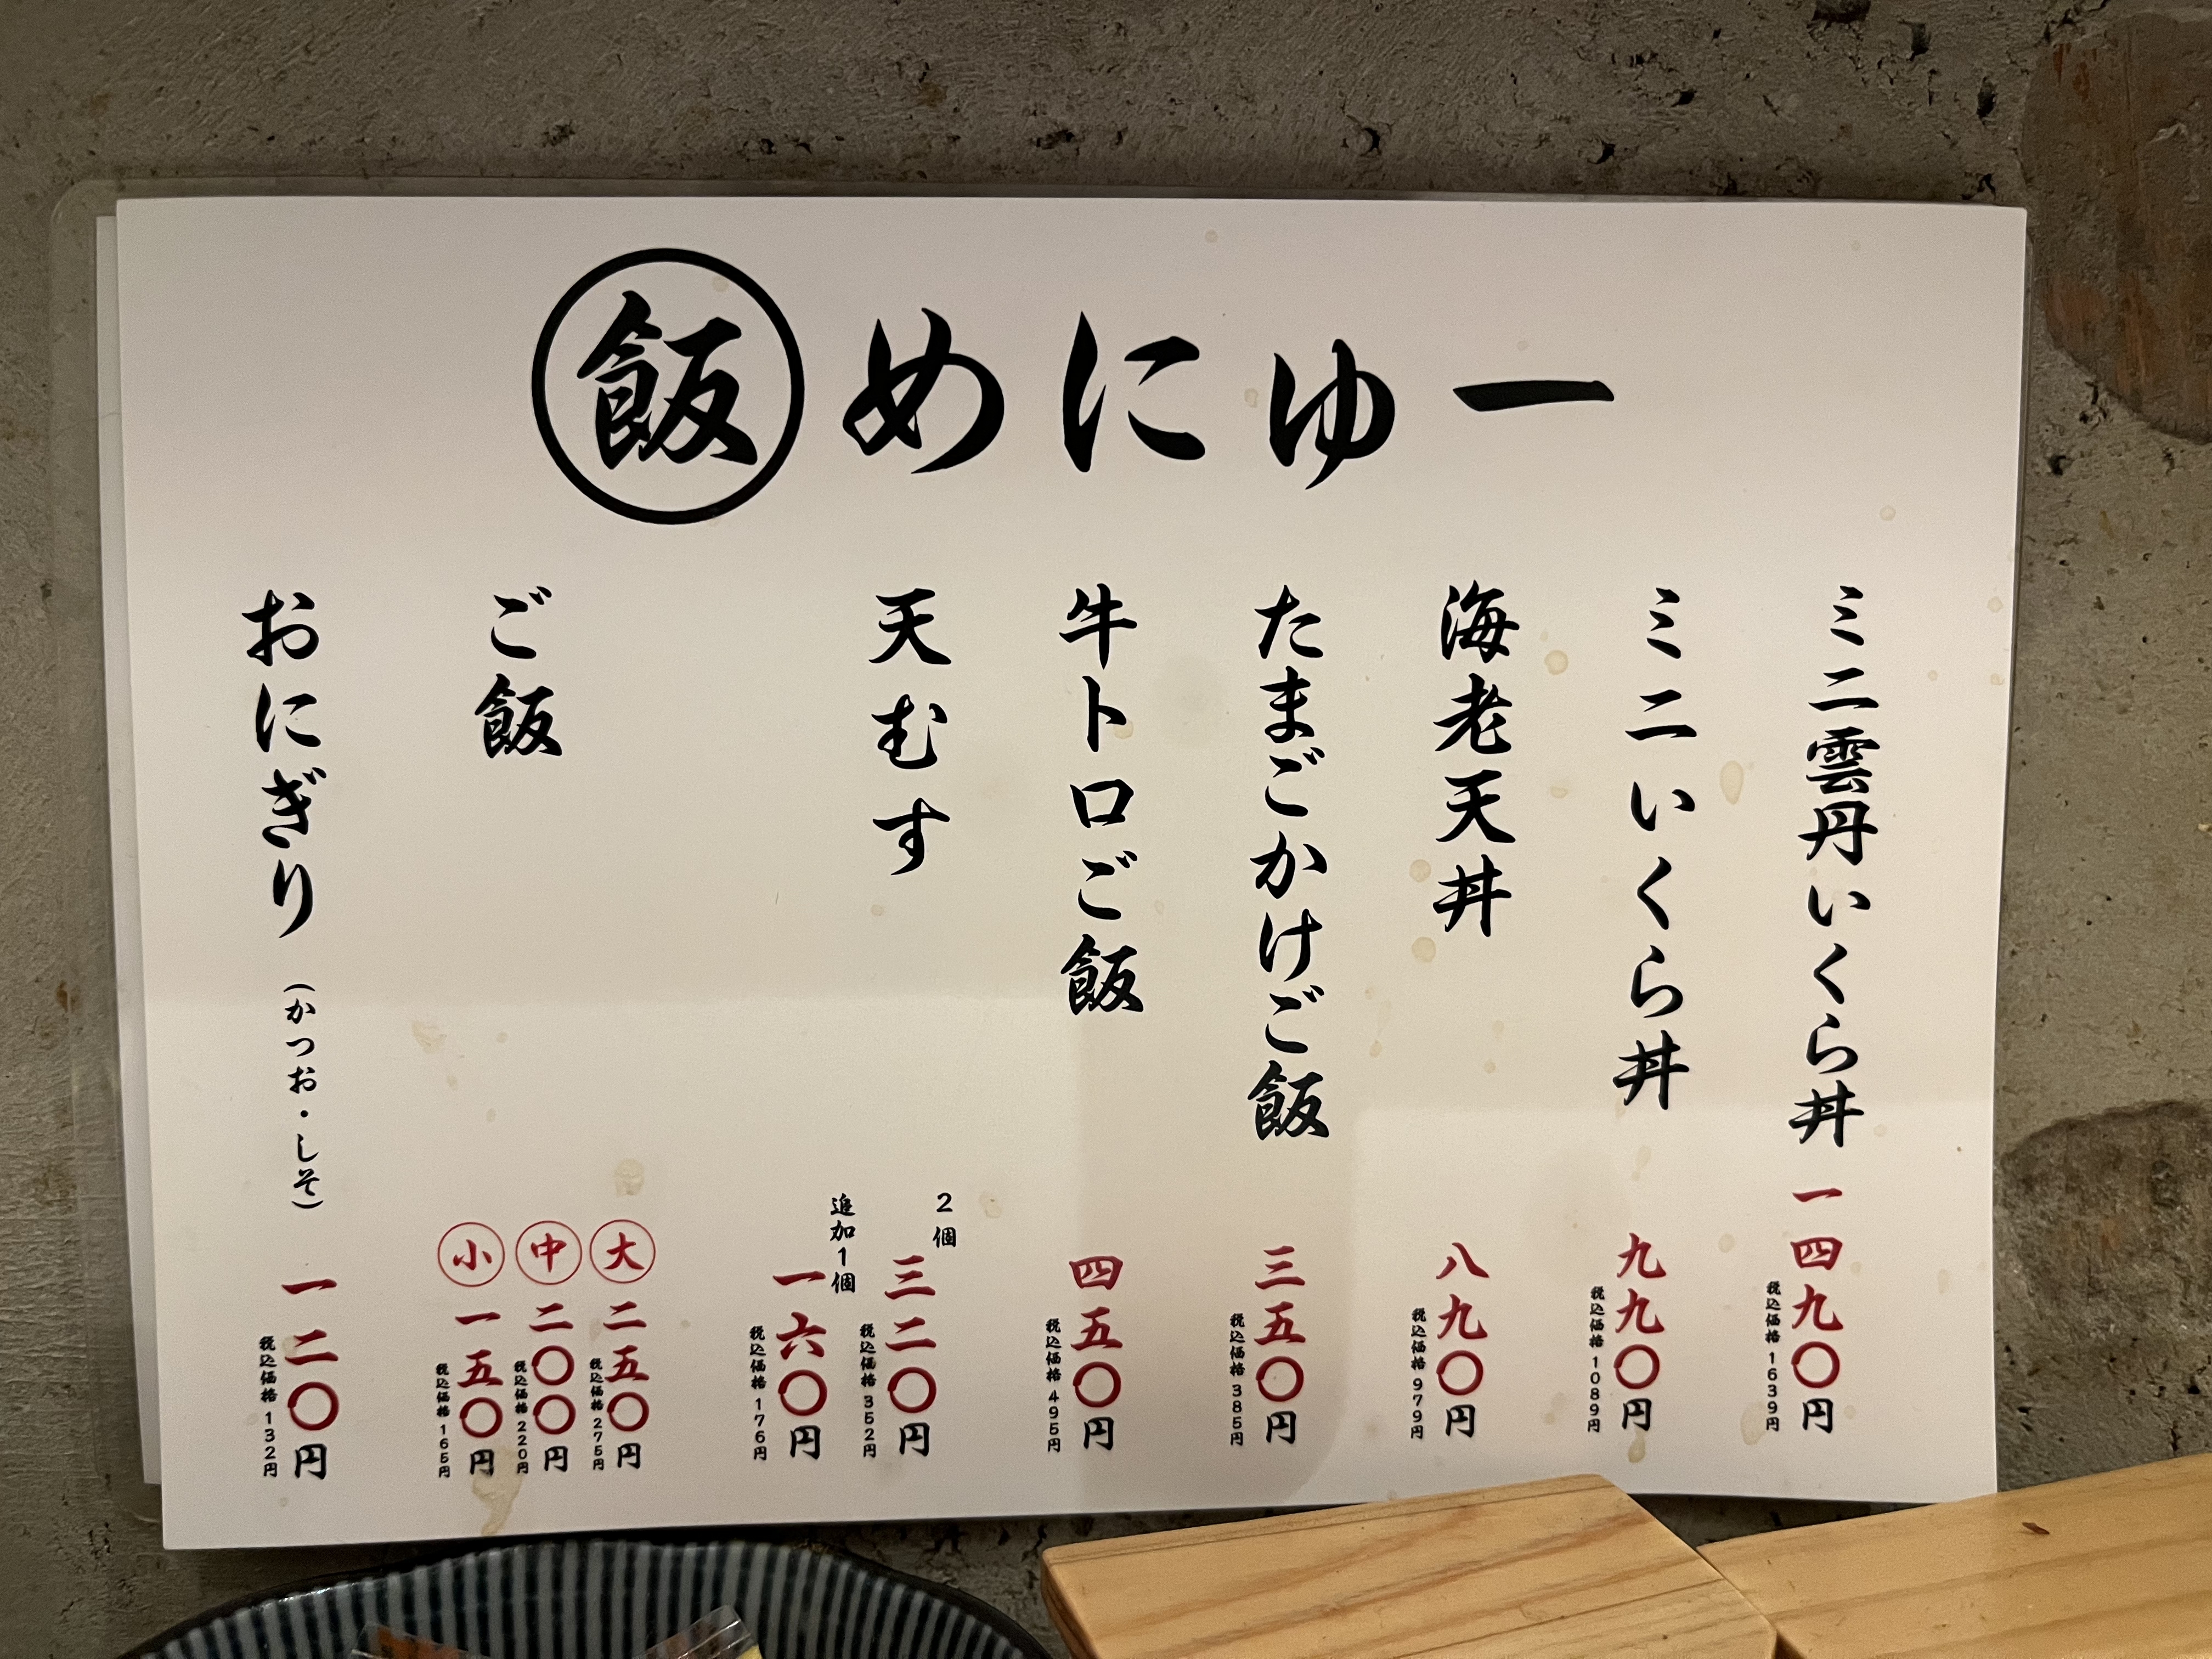 飯めにゅー
ミニ雲丹いくら丼
一四九〇円
税込価格 1639円
ミニいくら丼
九九〇円
税込価格 1089円
海老天丼
八九〇円
税込価格 979円
たまごかけご飯
三五〇円
税込価格 385円
牛トロご飯
四五〇円
税込価格 495円
天むす
2個
三二〇円
税込価格 352円
追加1個
一六〇円
税込価格 176円
ご飯
大 二五〇円
税込価格 275円
中 二〇〇円
税込価格 220円
小 一五〇円
税込価格 165円
おにぎり(かつお・しそ)
一二〇円
税込価格 132円